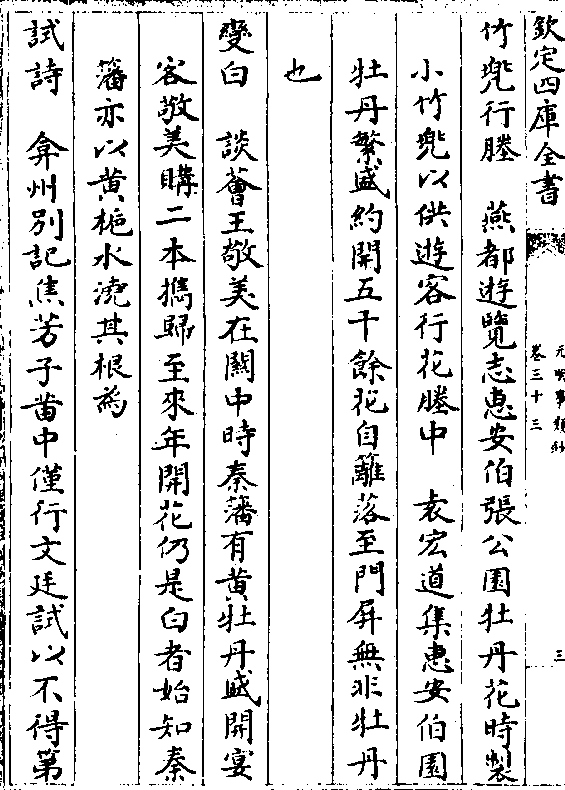 欽定四庫全書
元明事類鈔
卷三十三
三
竹兠行塍　燕都遊覽志惠安伯張公園牡丹花時製
小竹兠以供遊客行花塍中　袁宏道集惠安伯園
牡丹繁盛約開五千餘花自籬落至門屏無非牡丹
也
變白　談薈王敬美在關中時秦藩有黄牡丹盛開宴
客敬美購二本携歸至來年開花仍是白者始知秦
籓亦以黄梔水澆其根為
試詩　弇州别記焦芳子黄中僅行文廷試以不得第